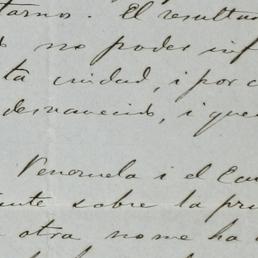 torno. El resultad
no poder inf
ta ciudad, i por c
desvanecido, i que
Venezuela i el Ecu
tante sobre la pri
otra no me ha